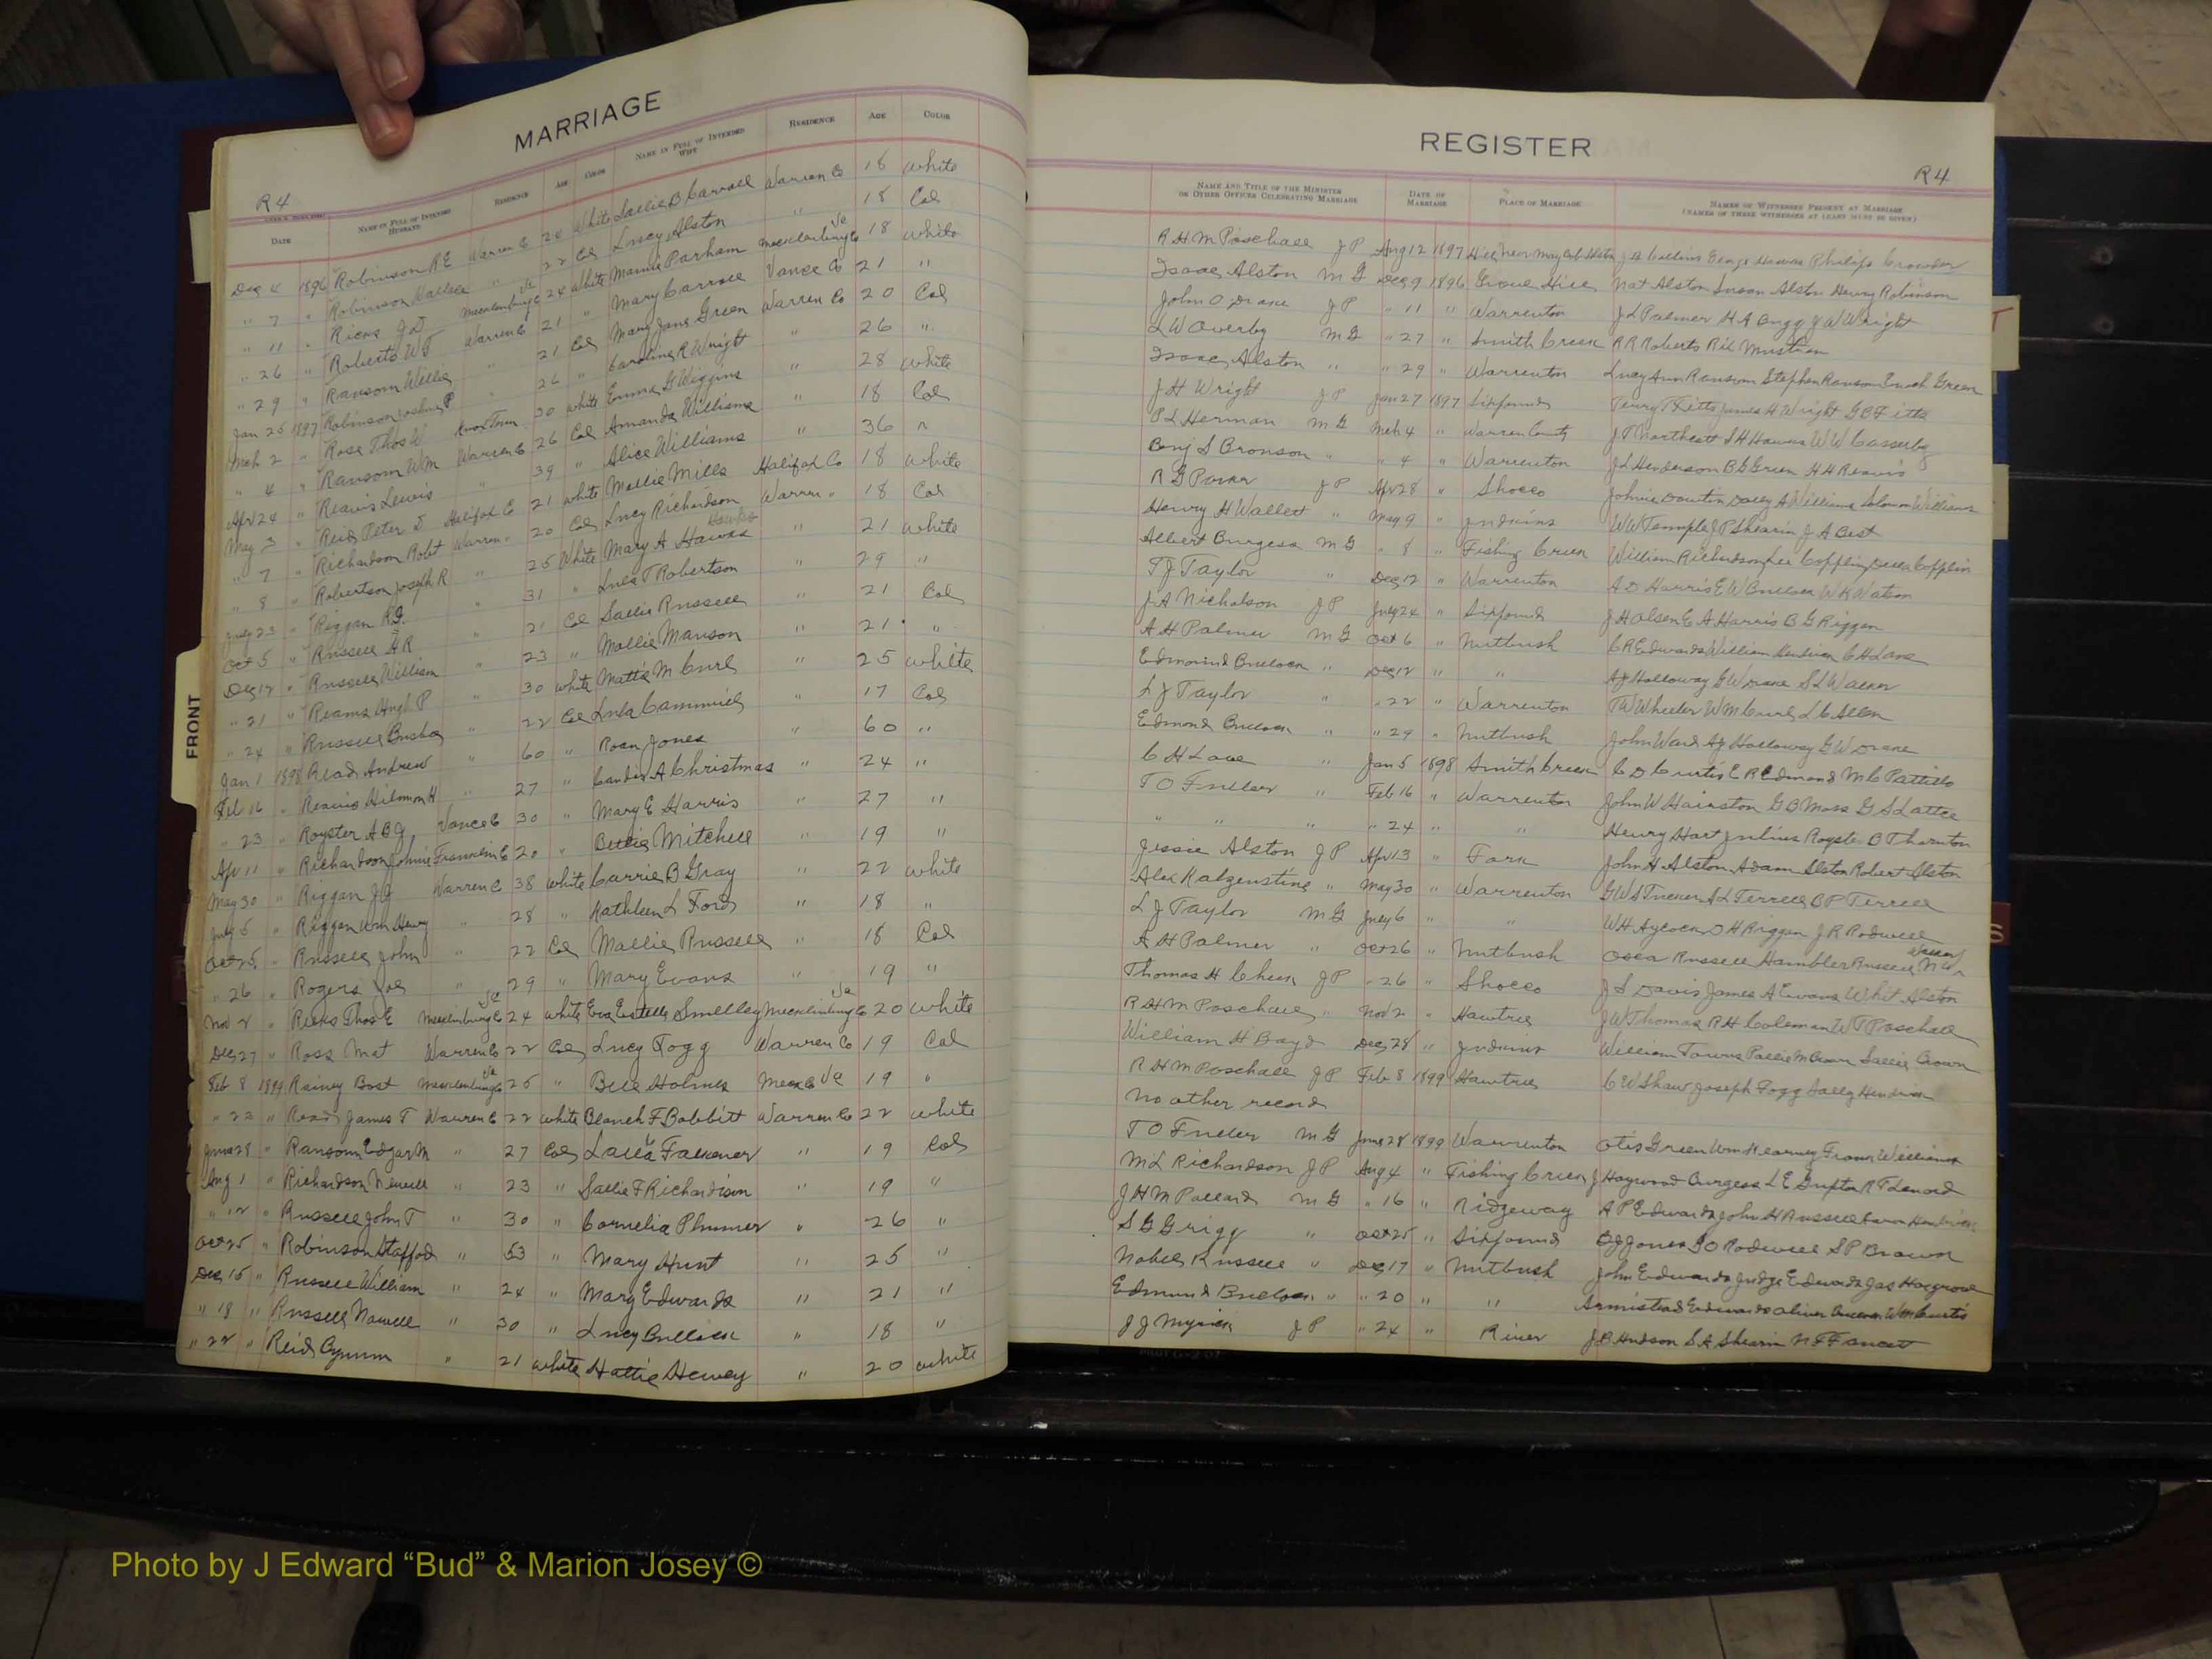 MARRIAGE
R4
DATE NAME IN FULL OF INTENDED HUSBAND RESIDENCE AGE COLOR NAME IN FULL OF INTENDED WIFE RESIDENCE AGE COLOR
Dec 4 1896 Robinson R E Warren Co 20 White Sallie B Carroll Warren Co 18 white
" 7 " Robinson " 22 Col Lucy Alston " 18 Col
" 11 " Ricks J D Mecklenburg Co Va 24 White Mamie Parham Mecklenburg Co Va 18 white
" 26 " Roberts W T Warren Co 21 " Mary Carroll Vance Co 21 "
" 29 " Ransom Willis " 21 Col Mary Jane Green Warren Co 20 Col
Jan 25 1897 Robinson P " 26 " Caroline R Wright " 26 "
Mch 2 " Rose Thos W 30 white Emma G Wiggins " 28 white
" 4 " Ransom Wm Warren Co 26 Col Amanda Williams " 18 Col
Apr 24 " Reavis Lewis " 39 " Alice Williams " 36 "
May 3 " Reid Peter D Halifax Co 21 white Mollie Mills Halifax Co 18 white
" 7 " Richardson Robt Warren " 20 Col Lucy Richardson Warren " 18 Col
" 8 " Robertson Joseph R " 25 White Mary A Hawks " 21 white
July 23 " Riggan R G " 31 " Lula T Robertson " 29 "
Oct 5 " Russell H R " 21 Col Sallie Russell " 21 Col
Dec 12 " Russell William " 23 " Mollie Manson " 21 "
" 21 " Reams Hugh P " 30 white Mattie M Curl " 25 white
" 24 " Russell Busba " 22 Col Lula Cammiel " 17 Col
Jan 1 1898 Read Andrew " 60 " Roan Jones " 60 "
Feb 16 " Reavis Hilmon H " 27 " Candis A Christmas " 24 "
" 23 " Royster A B J Vance Co 30 " Mary E Harris " 27 "
Apr 11 " Richardson Johnie Franklin Co 20 " Bettie Mitchell " 19 "
May 30 " Riggan J G Warren Co 38 white Carrie B Gray " 22 white
July 5 " Riggan Wm Henry " 28 " Kathleen L Ford " 18 "
Oct 25 " Russell John " 22 Col Mollie Russell " 18 Col
" 26 " Rogers Joe " 29 " Mary Evans " 19 "
Nov 2 " Ricks Thos E Mecklenburg Co Va 24 white Eva Estelle Smelley Mecklenburg Co Va 20 white
Dec 27 " Ross Mat Warren Co 22 Col Lucy Fogg Warren Co 19 Col
Feb 8 1899 Rainey Bost Mecklenburg Co Va 25 " Bell Holmes Meck Co Va 19 "
" 22 " Read James T Warren Co 22 white Blanch F Bobbitt Warren Co 22 white
June 28 " Ransom Edgar M " 27 Col Faulkner " 19 Col
Aug 1 " Richardson Newell " 23 " Sallie F Richardson " 19 "
" 12 " Russell John T " 30 " Cornelia Plummer " 26 "
Oct 25 " Robinson Stafford " 53 " Mary Hunt " 25 "
Dec 15 " Russell William " 24 " Mary Edwards " 21 "
" 18 " Russell " 30 " Lucy Bullock " 18 "
" 22 " Reid " 21 white Hattie Hervey " 20 white
FRONT
REGISTER
R4
NAME AND TITLE OF THE MINISTER OR OTHER OFFICER CELEBRATING MARRIAGE DATE OF MARRIAGE PLACE OF MARRIAGE NAMES OF WITNESSES PRESENT AT MARRIAGE (NAMES OF THREE WITNESSES AT LEAST MUST BE GIVEN)
R H M Paschall J P Aug 12 1897 Philip Crowder
Isaac Alston M G Dec 9 1896 Grove Hill Nat Alston Susan Alston Henry Robinson
John O Drake J P " 11 " Warrenton J L Palmer H A W Wright
L W Overby M G " 27 " Smith Creek R R Roberts
Isaac Alston " " 29 " Warrenton Lucy Ann Ransom Stephen Ransom Enoch Green
J H Wright J P Jan 27 1897 Sixpound Perry T Fitts James H Wright G C Fitts
P L Herman M G Mch 4 " Warren County J P Northcott S H Hawks W W
Benj S Bronson " " 4 " Warrenton J L Henderson B G Green H H Reavis
J P Apr 28 " Shocco Johnie Dowtin A Williams Solomon Williams
Henry H Wallett " May 9 " Judkins W W Temple J P Shearin J A Best
Albert Burgess M G " 8 " Fishing Creek William Richardson
T J Taylor " Dec 12 " Warrenton A D Harris E W Bullock W K Watson
J A Nicholson J P July 24 " Sixpound A Harris B G Riggan
A H Palmer M G Oct 6 " Nutbush C R Edwards William C H Lane
Edmond Bullock " Dec 12 " " A J Holloway G W Drake S L Walker
L J Taylor " " 22 " Warrenton T W Wheeler W M Curl L C Allen
Edmond Bullock " " 29 " Nutbush John Ward A J Holloway G W Drake
C H Lane " Jan 5 1898 Smith Creek C D Curtis E R Edmond M C Pattillo
T O Fuller " Feb 16 " Warrenton John W Hairston G B Moss G S
" " " " 24 " " Henry Hart Julius Royster B Thornton
Jessie Alston J P Apr 13 " Fork John H Alston Adam Alston Robert Alston
Alex Katzenstine " May 30 " Warrenton G W S Tucker A L Terrell B P Terrell
L J Taylor M G July 6 " " W H Aycock D H Riggan J R Rodwell
A H Palmer " Oct 26 " Nutbush Oscar Russell Hambler Russell
Thomas H J P " 26 " Shocco J S Davis James A Evans Whit Alston
R H M Paschall " Nov 2 " Hawtree J W Thomas R H Coleman W T Paschall
William H Boyd Dec 28 " Judkins William Towns
R H M Paschall J P Feb 8 1899 Hawtree C W Shaw Joseph Fogg Sally
No other record
T O Fuller M G June 28 1899 Warrenton Otis Green Wm Kearney Frank Williams
M L Richardson J P Aug 4 " Fishing Creek J Haywood Burgess L E Gupton
J H M Pollard M G " 16 " Ridgeway A P Edwards John H Russell
S G Grigg " Oct 25 " Sixpound Jones Rodwell S P Brown
Russell " Dec 17 " Nutbush John Edwards Judge Edwards Jas Hargrove
Edmund Bullock " " 20 " " Armistead Edwards Oliver Bullock Wm Curtis
J J Myrick J P " 24 " River J B Hudson S A Shearin
Photo by J Edward “Bud” & Marion Josey ©